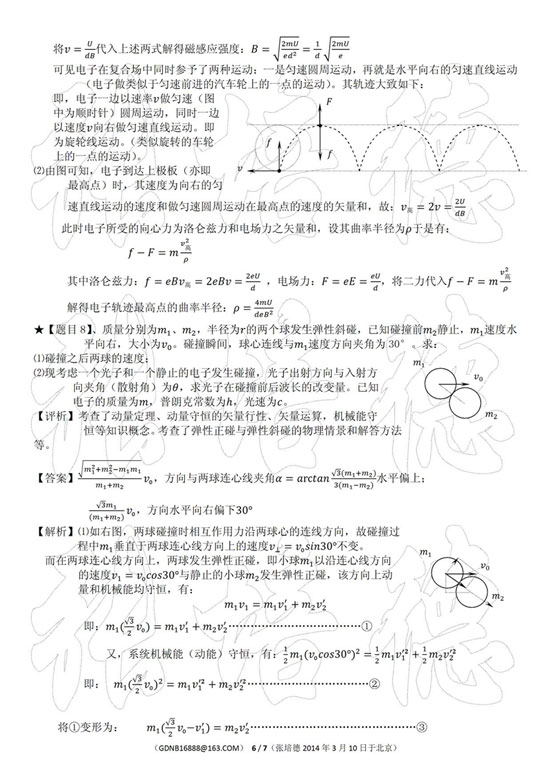 将v = U/dB代入上述两式解得磁感应强度：B = √(2mU/ed²) = 1/d √(2mU/e)
可见电子在复合场中同时参予了两种运动：一是匀速圆周运动，再就是水平向右的匀速直线运动
（电子做类似于匀速前进的汽车轮上的一点的运动）。其轨迹大致如下：
即，电子一边以速率v做匀速（图
中为顺时针）圆周运动，同时一边
以速度v向右做匀速直线运动。即
为旋轮线运动。（类似旋转的车轮
上的一点的运动）。
F
f
f
v
⑵由图可知，电子到达上极板（亦即
最高点）时，其速度为向右的匀
速直线运动的速度和做匀速圆周运动在最高点的速度的矢量和，故：v高 = 2v = 2U/dB
此时电子所受的向心力为洛仑兹力和电场力之矢量和，设其曲率半径为ρ于是有：
f − F = m v高²/ρ
其中洛仑兹力：f = eBv高 = 2eBv = 2eU/d ，电场力：F = eE = eU/d，将二力代入f − F = m v高²/ρ
解得电子轨迹最高点的曲率半径：ρ = 4mU/deB²
★【题目 8】、质量分别为m₁、m₂，半径为r的两个球发生弹性斜碰，已知碰撞前m₂静止，m₁速度水
平向右，大小为v₀。碰撞瞬间，球心连线与m₁速度方向夹角为 30°。求：
⑴碰撞之后两球的速度；
⑵现考虑一个光子和一个静止的电子发生碰撞，光子出射方向与入射方
向夹角（散射角）为θ，求光子在碰撞前后波长的改变量。已知
电子的质量为m，普朗克常数为h，光速为c。
m₁
v₀
m₂
【评析】考查了动量定理、动量守恒的矢量行性、矢量运算，机械能守
恒等知识概念。考查了弹性正碰与弹性斜碰的物理情景和解答方法
等。
【答案】√(m₁²+m₂²−m₁m₁)/(m₁+m₂) v₀，方向与两球连心线夹角α = arctan √3(m₁+m₂)/3(m₁−m₂) 水平偏上；
√3m₁/(m₁+m₂) v₀，方向水平向右偏下30°
【解析】⑴如右图，两球碰撞时相互作用力沿两球心的连线方向，故碰撞过
程中m₁垂直于两球连心线方向上的速度v⊥ = v₀sin30°不变。
而在两球连心线方向上，两球发生弹性正碰，即小球m₁以沿连心线方向
的速度v₁ = v₀cos30°与静止的小球m₂发生弹性正碰，该方向上动
量和机械能均守恒，有：
m₁
v₀
m₂
m₁v₁ = m₁v₁′ + m₂v₂′
即：m₁(√3/2 v₀) = m₁v₁′ + m₂v₂′⋯⋯⋯⋯⋯⋯⋯⋯⋯⋯①
又，系统机械能（动能）守恒，有：½m₁(v₀cos30°)² = ½m₁v₁′² + ½m₂v₂′²
即： m₁(√3/2 v₀)² = m₁v₁′² + m₂v₂′²⋯⋯⋯⋯⋯⋯⋯⋯⋯②
将①变形为： m₁(√3/2 v₀−v₁′) = m₂v₂′⋯⋯⋯⋯⋯⋯⋯⋯⋯⋯⋯⋯③
（GDNB16888@163.COM） 6 / 7（张培德 2014 年 3 月 10 日于北京）